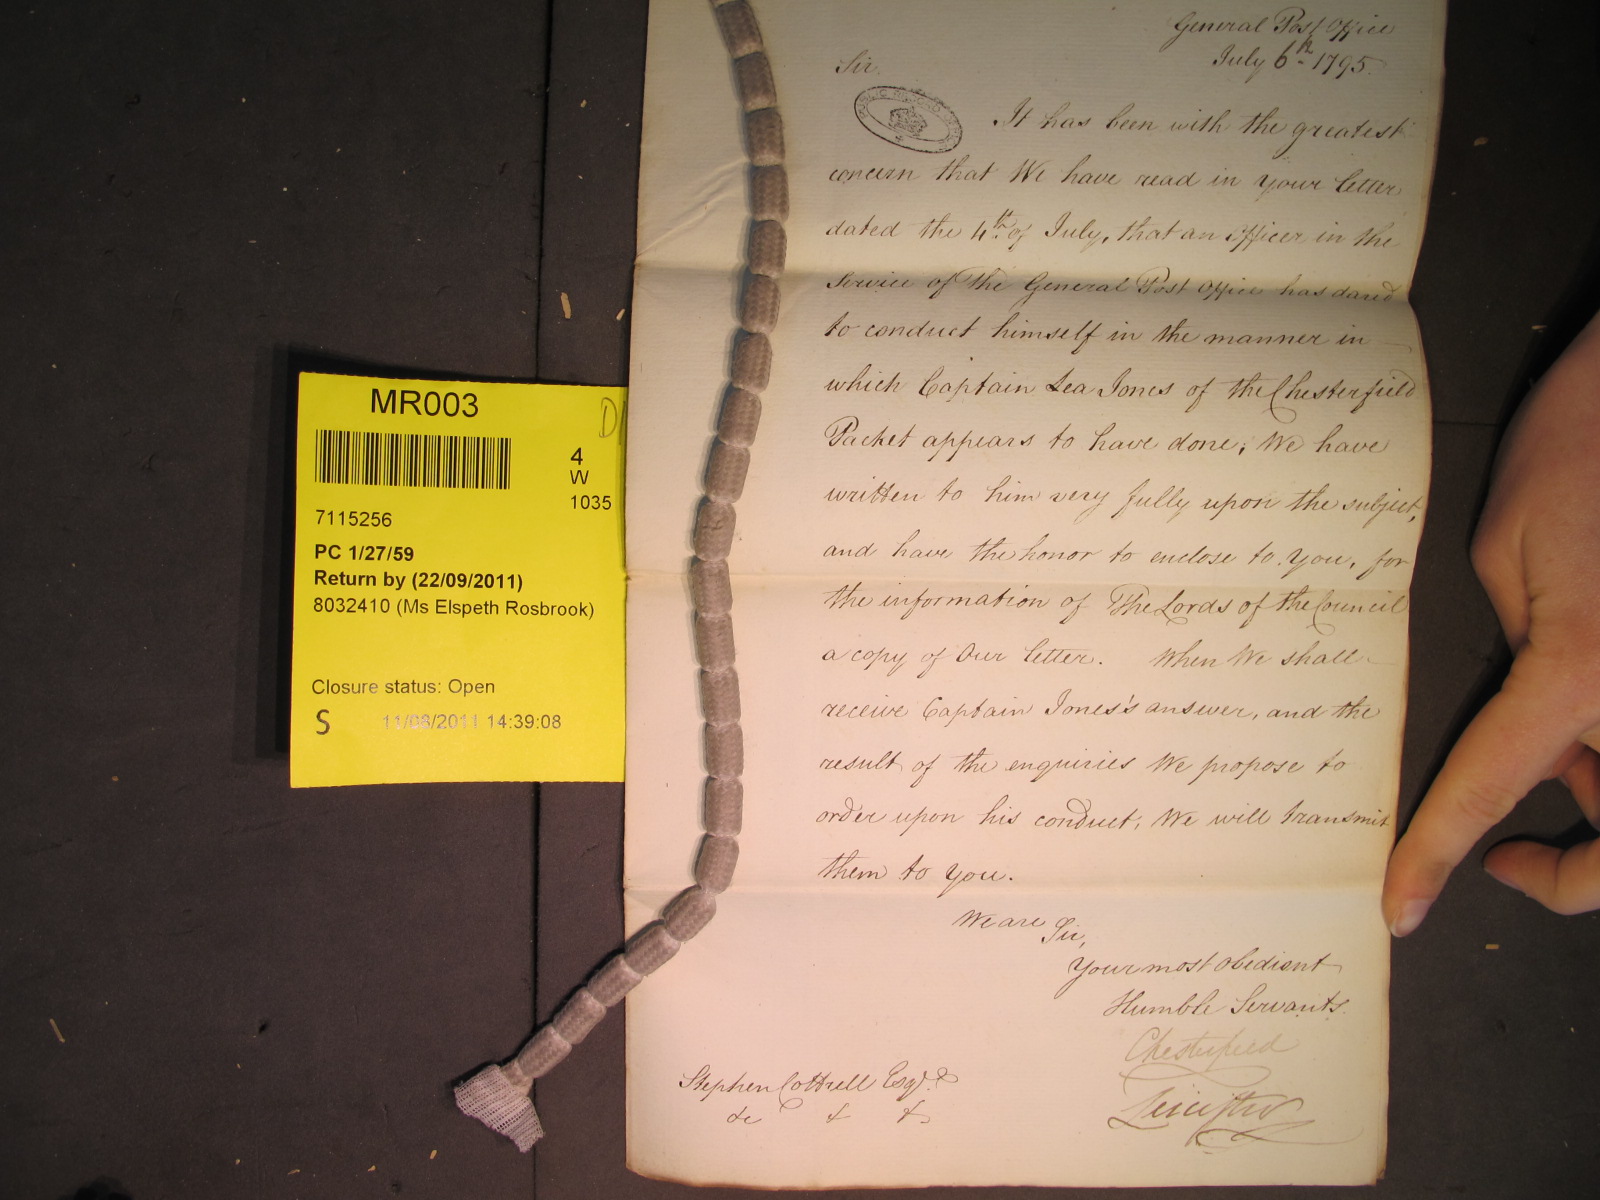 General Post Office
July 6th. 1795.
Sir.
PUBLIC RECORD OFFICE
It has been with the greatest
concern that We have read in your letter
dated the 4th. of July, that an Officer in the
Service of the General Post Office has dared
to conduct himself in the manner in
which Captain Lea Jones of the Chesterfield
Packet appears to have done; We have
written to him very fully upon the subject,
and have the honor to enclose to You, for
the information of The Lords of the Council
a copy of Our letter. When We shall
receive Captain Jones's answer, and the
result of the enquiries We propose to
order upon his conduct, We will transmit
them to You.
We are Sir,
Your most obedient
Humble Servants.
Chesterfield
Leicester
Stephen Cottrell Esqr. &
&c & &
MR003
4
W
1035
7115256
PC 1/27/59
Return by (22/09/2011)
8032410 (Ms Elspeth Rosbrook)
Closure status: Open
S 11/08/2011 14:39:08